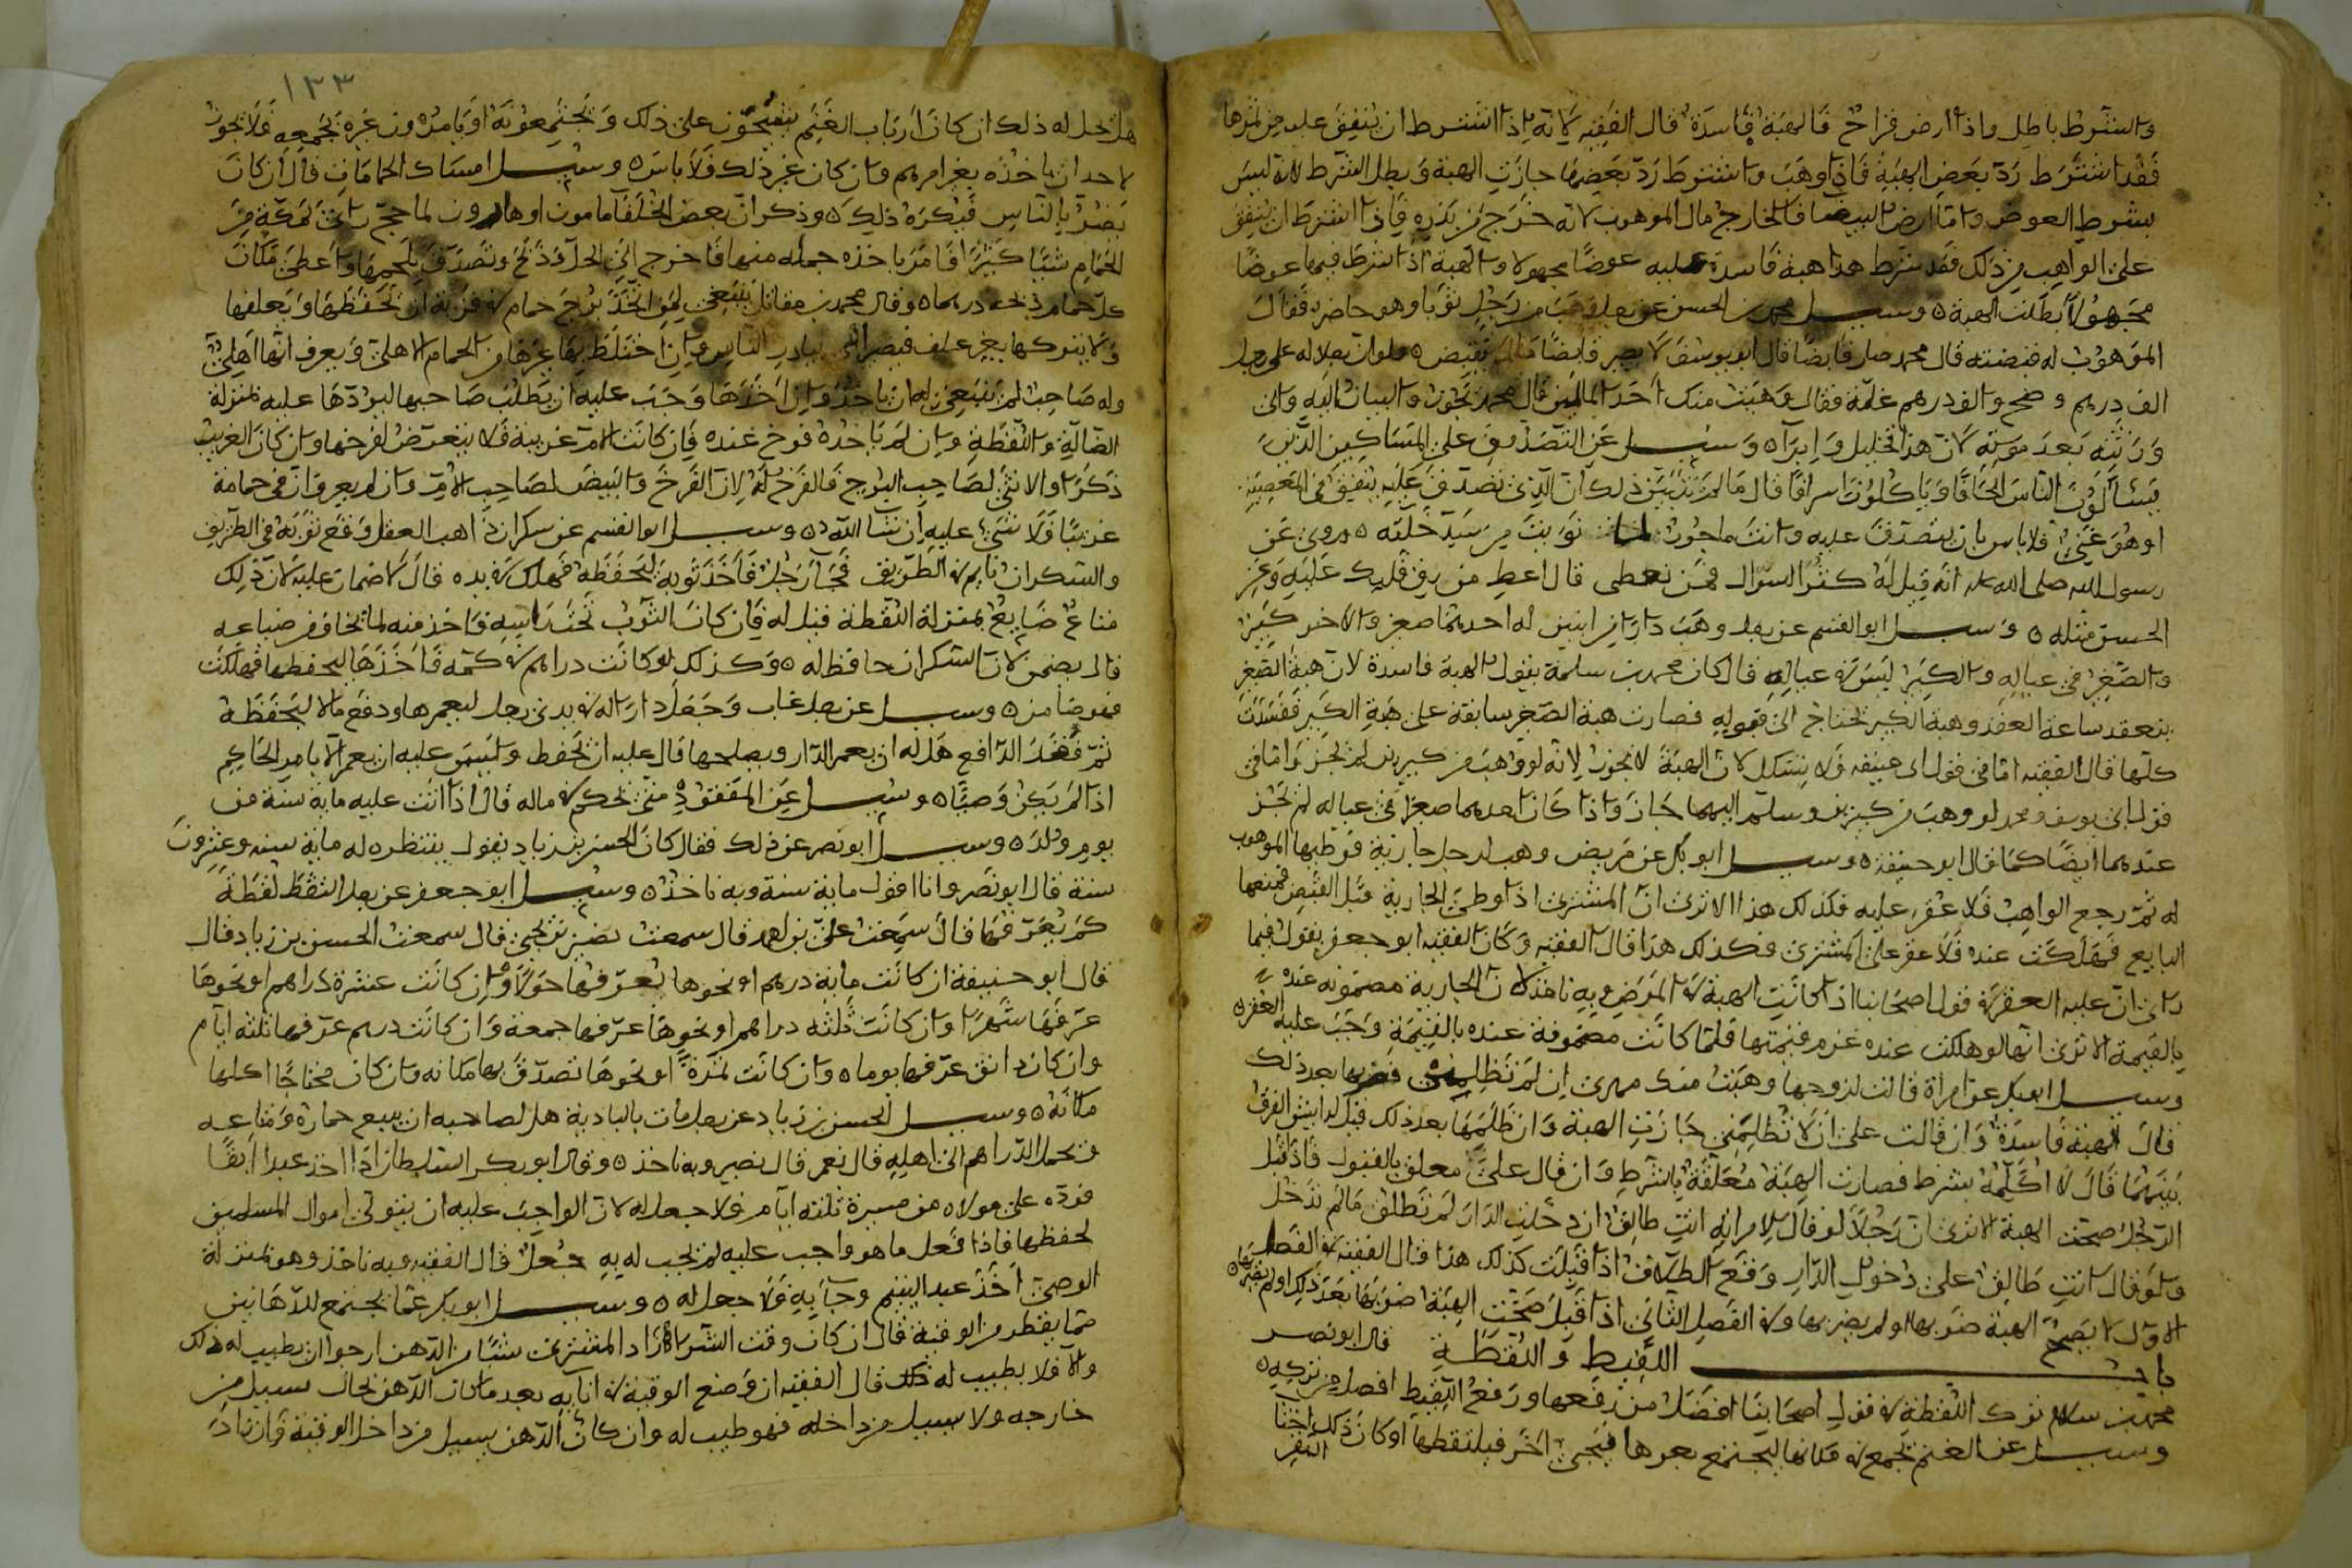 والشرط باطل واذا ارض قراح فالهبة فاسدة قال الفقيه لانه اذا اشترط ان ينفق عليه من ثمرها
فقد اشترط رد بعض الهبة فاذا وهب واشترط رد بعضها جازت الهبة وبطل الشرط لانه ليس
بشرط العوض واما ارض البيضا فالخارج مال الموهوب لانه خرج من بذره فاذا اشترط ان ينفق
على الواهب من ذلك فقد شرط هذا هبة فاسدة عليه عوضا مجهولا والهبة اذا شرط فيها عوضا
مجهولا بطلت الهبة وسيل محمد بن الحسن عن رجل وهب من رجل ثوبا وهو حاضره فقال
الموهوب له قبضته قال محمد صار قابضا قال ابو يوسف لا يصير قابضا ما لم يقبض ولو ان رجلا له على رجل
الف درهم وضح والف درهم غلة فقال وهبت منك احد المالين قال محمد يجوز والبيان اليه والى
ورثته بعد موته لان هذا تحليل وابراء وسيل عن التصدق على المساكين الذين
يسألون الناس الحافا وياكلون اسرافا قال ما لم يتبين ذلك ان الذي تصدق عليه ينفق في المعصية
او هو غني فلا باس بان يتصدق عليه وانت ماجور نويت من سد خلته وروي عن
رسول الله صلى الله عليه انه قيل له كثر السوال فمن نعطي قال اعط من رق قلبك عليه وعن
الحسن مثله وسيل ابو القسم عن رجل وهب دارا من ابنين له احدهما صغير والاخر كبير
والصغير في عياله والكبير ليس في عياله قال كان محمد بن سلمة يقول الهبة فاسدة لان هبة الصغير
ينعقد ساعة العقد وهبة الكبير تحتاج الى قبوله فصارت هبة الصغير سابقة على هبة الكبير ففسدت
كلها قال الفقيه اما في قول ابي حنيفة فلا يشكل لان الهبة لا تجوز لانه لو وهب من كبيرين لم يجز واما في
قول ابي يوسف ومحمد لو وهب من كبيرين وسلم اليهما جاز واذا كان احدهما صغيرا في عياله لم يجز
عندهما ايضا كما قال ابو حنيفة وسيل ابو بكر عن مريض وهب لرجل جارية فوطيها الموهوب
له ثم رجع الواهب فلا عقر عليه فكذلك هذا الا ترى ان المشتري اذا وطئ الجارية قبل القبض فمنعها
البايع فهلكت عنده فلا عقر على المشتري فكذلك هذا قال الفقيه وكان الفقيه ابو جعفر يقول فيما
راى ان عليه العقر في قول اصحابنا اذا كانت الهبة في المرض وبه ناخذ لان الجارية مضمونة عنده
بالقيمة الا ترى انها لو هلكت عنده غرم قيمتها فلما كانت مضمونة عنده بالقيمة وجب عليه العقر
وسيل ابو بكر عن امراة قالت لزوجها وهبت منك مهري ان لم تظلمني فضربها بعد ذلك
قال الهبة فاسدة وان قالت على ان لا تظلمني جازت الهبة وان ظلمها بعد ذلك قيل له ايش الفرق
بينهما قال لا اكلمه بشرط فصارت الهبة معلقة بالشرط وان قال على معلق بالقبول فاذا قبل
الرجل صحت الهبة الا ترى ان رجلا لو قال لامراته انت طالق ان دخلت الدار لم تطلق ما لم تدخل
ولو قال انت طالق على دخول الدار وقع الطلاق اذا قبلت كذلك هذا قال الفقيه في الفصل
الاول لا يصح الهبة ضربها او لم يضربها وفي الفصل الثاني اذا قبل صحت الهبة ضربها بعد ذلك او لم يضربها
باب اللقيط واللقطة قال ابو نصر
محمد بن سلام ترك اللقطة في قول اصحابنا افضل من رفعها ورفع اللقيط افضل من تركه
وسيل عن الغنم تجمع في مكانها ليجتمع بعرها فيجي اخر فيلتقطها او كان ذلك اختا
البقر
١٣٣
هل يحل له ذلك ان كان ارباب الغنم يتشحون على ذلك ويجتمعونه او يامرون غيره بجمعه فلا يجوز
لاحد ان ياخذه بغير امرهم وان كان غير ذلك فلا باس وسيل امساك الحمامات قال ان كان
يضر بالناس فيكره ذلك وذكر ان بعض الخلفا مامون او هارون لما حج راى بمكة من
الحمام شيا كثيرا فامر باخذه جمله منها فاخرج الى الحل وذبح وتصدق بلحمها واعطى مكان
كل حمام ذبحه درهما وقال محمد بن مقاتل ينبغي لمن اتخذ برج حمام في قرية ان يحفظها ويعلفها
ولا يتركها بغير علف فيضر الناس وان اختلط بها غيرها من الحمام الاهلي ويعرف انها اهلي
وله صاحب لم ينبغي له ان ياخذ وان اخذها وجب عليه ان يطلب صاحبها ليردها عليه بمنزلة
الضالة واللقطة وان لم ياخذه فرخ عنده فان كانت الام غريبة فلا يتعرض لفرخها وان كان الغريب
ذكرا والانثى لصاحب البرج فالفرخ له لان الفرخ والبيض لصاحب الام وان لم يعرف ان في حمامه
غريبا فلا شي عليه ان شا الله وسيل ابو القسم عن سكران ذاهب العقل وقع ثوبه في الطريق
والسكران نايم في الطريق فجا رجل فاخذ ثوبه ليحفظه فهلك في يده قال لا ضمان عليه لان ذلك
متاع ضايع بمنزلة اللقطة قيل له فان كان الثوب تحت راسه فاخذ منه لما يخاف من ضياعه
قال يضمن لان السكران حافظ له وكذلك لو كانت دراهم في كمه فاخذها ليحفظها فهلكت
فهو ضامن وسيل عن رجل غاب وجعل دارا له في يدي رجل ليعمرها ودفع مالا ليحفظه
ثم فقد الدافع هل له ان يعمر الدار ويصلحها قال عليه ان يحفظ وليس عليه ان يعمر الا بامر الحاكم
اذا لم يكن وصيا وسيل عن المفقود متى يحكم في ماله قال اذا اتت عليه ماية سنة من
يوم ولد وسيل ابو نصر عن ذلك فقال كان الحسن بن زياد يقول ينتظر له ماية سنه وعشرون
سنة قال ابو نصر وانا اقول ماية سنة وبه ناخذ وسيل ابو جعفر عن رجل التقط لقطة
كم يعرفها قال سمعت علي بن احمد قال سمعت نصير بن يحيى قال سمعت الحسن بن زياد قال
قال ابو حنيفة ان كانت ماية درهم او نحوها يعرفها حولا وان كانت عشرة دراهم او نحوها
عرفها شهرا وان كانت ثلثه دراهم او نحوها عرفها جمعة وان كانت درهم عرفها ثلثه ايام
وان كان دانق عرفها يوما وان كانت تمرة او نحوها تصدق بها مكانه وان كان محتاجا اكلها
مكانه وسيل الحسن بن زياد عن رجل مات بالبادية هل لصاحبه ان يبيع حماره ومتاعه
وتحمل الدراهم الى اهله قال نعم قال نصير وبه ناخذ وقال ابو بكر السلطان اذا اخذ عبدا ابقا
فرده على مولاه من مسيرة ثلثه ايام فلا جعل له لان الواجب عليه ان يتولى اموال المسلمين
لحفظها فاذا فعل ما هو واجب عليه لم يجب له به جعل قال الفقيه وبه ناخذ وهو بمنزلة
الوصي اخذ عبد اليتيم وجا به فلا جعل له وسيل ابو بكر عما يجتمع للدهانين
مما يقطر من الوقية قال ان كان وقت الشرا زاد المشتري شيا من الدهن ارجوا ان يطيب له ذلك
والا فلا يطيب له ذلك قال الفقيه ان وضع الوقية في انايه بعد ما ان الدهن بحال يسيل من
خارجه ولا يسيل من داخله فهو طيب له وان كان الدهن يسيل من داخل الوقية وان زاد